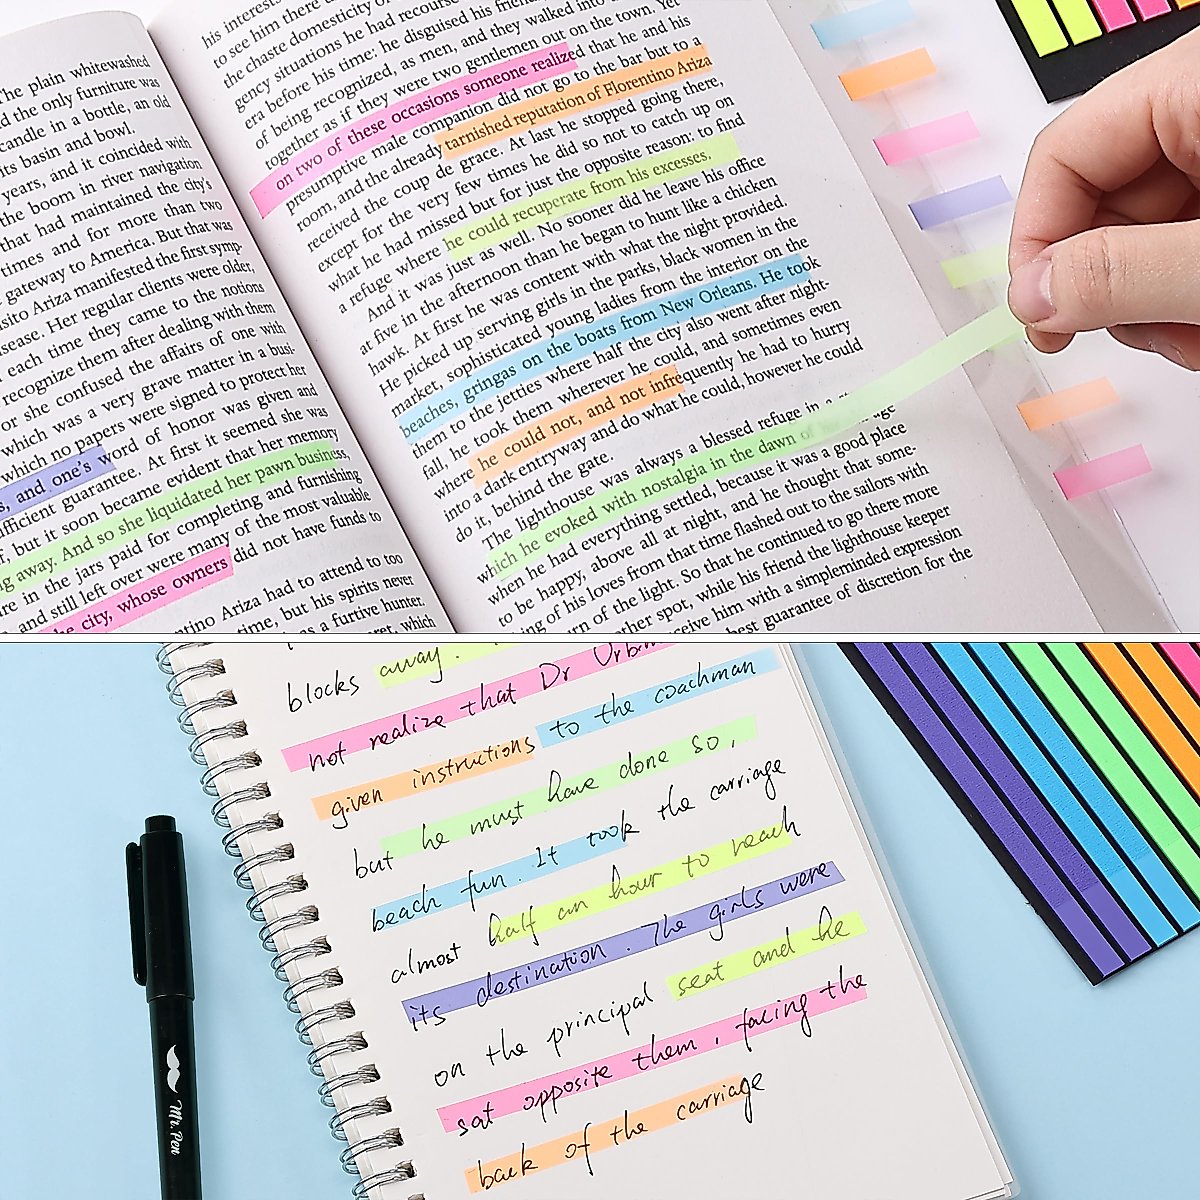 The plain whitewashed
d the only furniture was
candle in a bottle, an old
ts basin and bowl.
years, and it coincided with
the boom in river navigation
that had maintained the city's
times and for more than two
gateway to America. But that was
sito Ariza manifested the first symp-
sease. Her regular clients were older,
each time they came to the notions
recognize them after dealing with them
or she confused the affairs of one with
which was a very grave matter in a busi-
which no papers were signed to protect her
s, and one's word of honor was given and
fficient guarantee. At first it seemed she was
f, but it soon became evident that her memory
ng away. And so she liquidated her pawn business,
re in the jars paid for completing and furnishing
and still left over were many of the most valuable
he city, whose owners did not have funds to
ntino Ariza had to attend to too
time, but his spirits never
as a furtive hunter.
which
his interest
to see him there
the chaste domesticity of
gency situations he had recourse
era before his time: he disguised his friend
of being recognized, as men, and they walked into
together as if they were two gentlemen out on the town. Yet
on two of these occasions someone realized that he and his
presumptive male companion did not go to the bar but to a
room, and the already tarnished reputation of Florentino Ariza
received the coup de grace. At last he stopped going there,
except for the very few times he did so not to catch up on
what he had missed but for just the opposite reason: to find
a refuge where he could recuperate from his excesses.
And it was just as well. No sooner did he leave his office
at five in the afternoon than he began to hunt like a chicken
hawk. At first he was content with what the night provided.
He picked up serving girls in the parks, black women in the
market, sophisticated young ladies from the interior on the
beaches, gringas on the boats from New Orleans. He took
them to the jetties where half the city also went after night-
fall, he took them wherever he could, and sometimes even
where he could not, and not infrequently he had to hurry
into a dark entryway and do what he could, however he could
do it, behind the gate.
The lighthouse was always a blessed refuge in a
which he evoked with nostalgia in the dawn of
when he had everything settled, because it was a good place
to be happy, above all at night, and he thought that some-
thing of his loves from that time flashed out to the sailors with
urn of the light. So that he continued to go there more
other spot, while his friend the lighthouse keeper
ceive him with a simpleminded expression
best guarantee of discretion for the
blocks away.
not realize that Dr Urbin
given instructions to the coachman
but he must have done so,
beach fun. It took the carriage
almost half an hour to reach
its destination. The girls were
on the principal seat and he
sat opposite them, facing the
back of the carriage
Mr. Pen